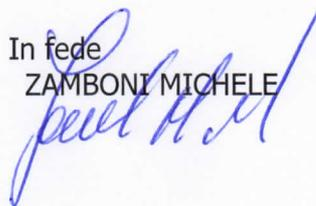 In fede
ZAMBONI MICHELE